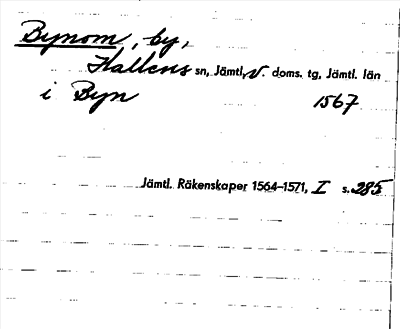 Bynom, by,
Hallens sn, Jämtl. v. doms. tg, Jämtl. län
i Byn 1567
Jämtl. Räkenskaper 1564–1571, I s. 285